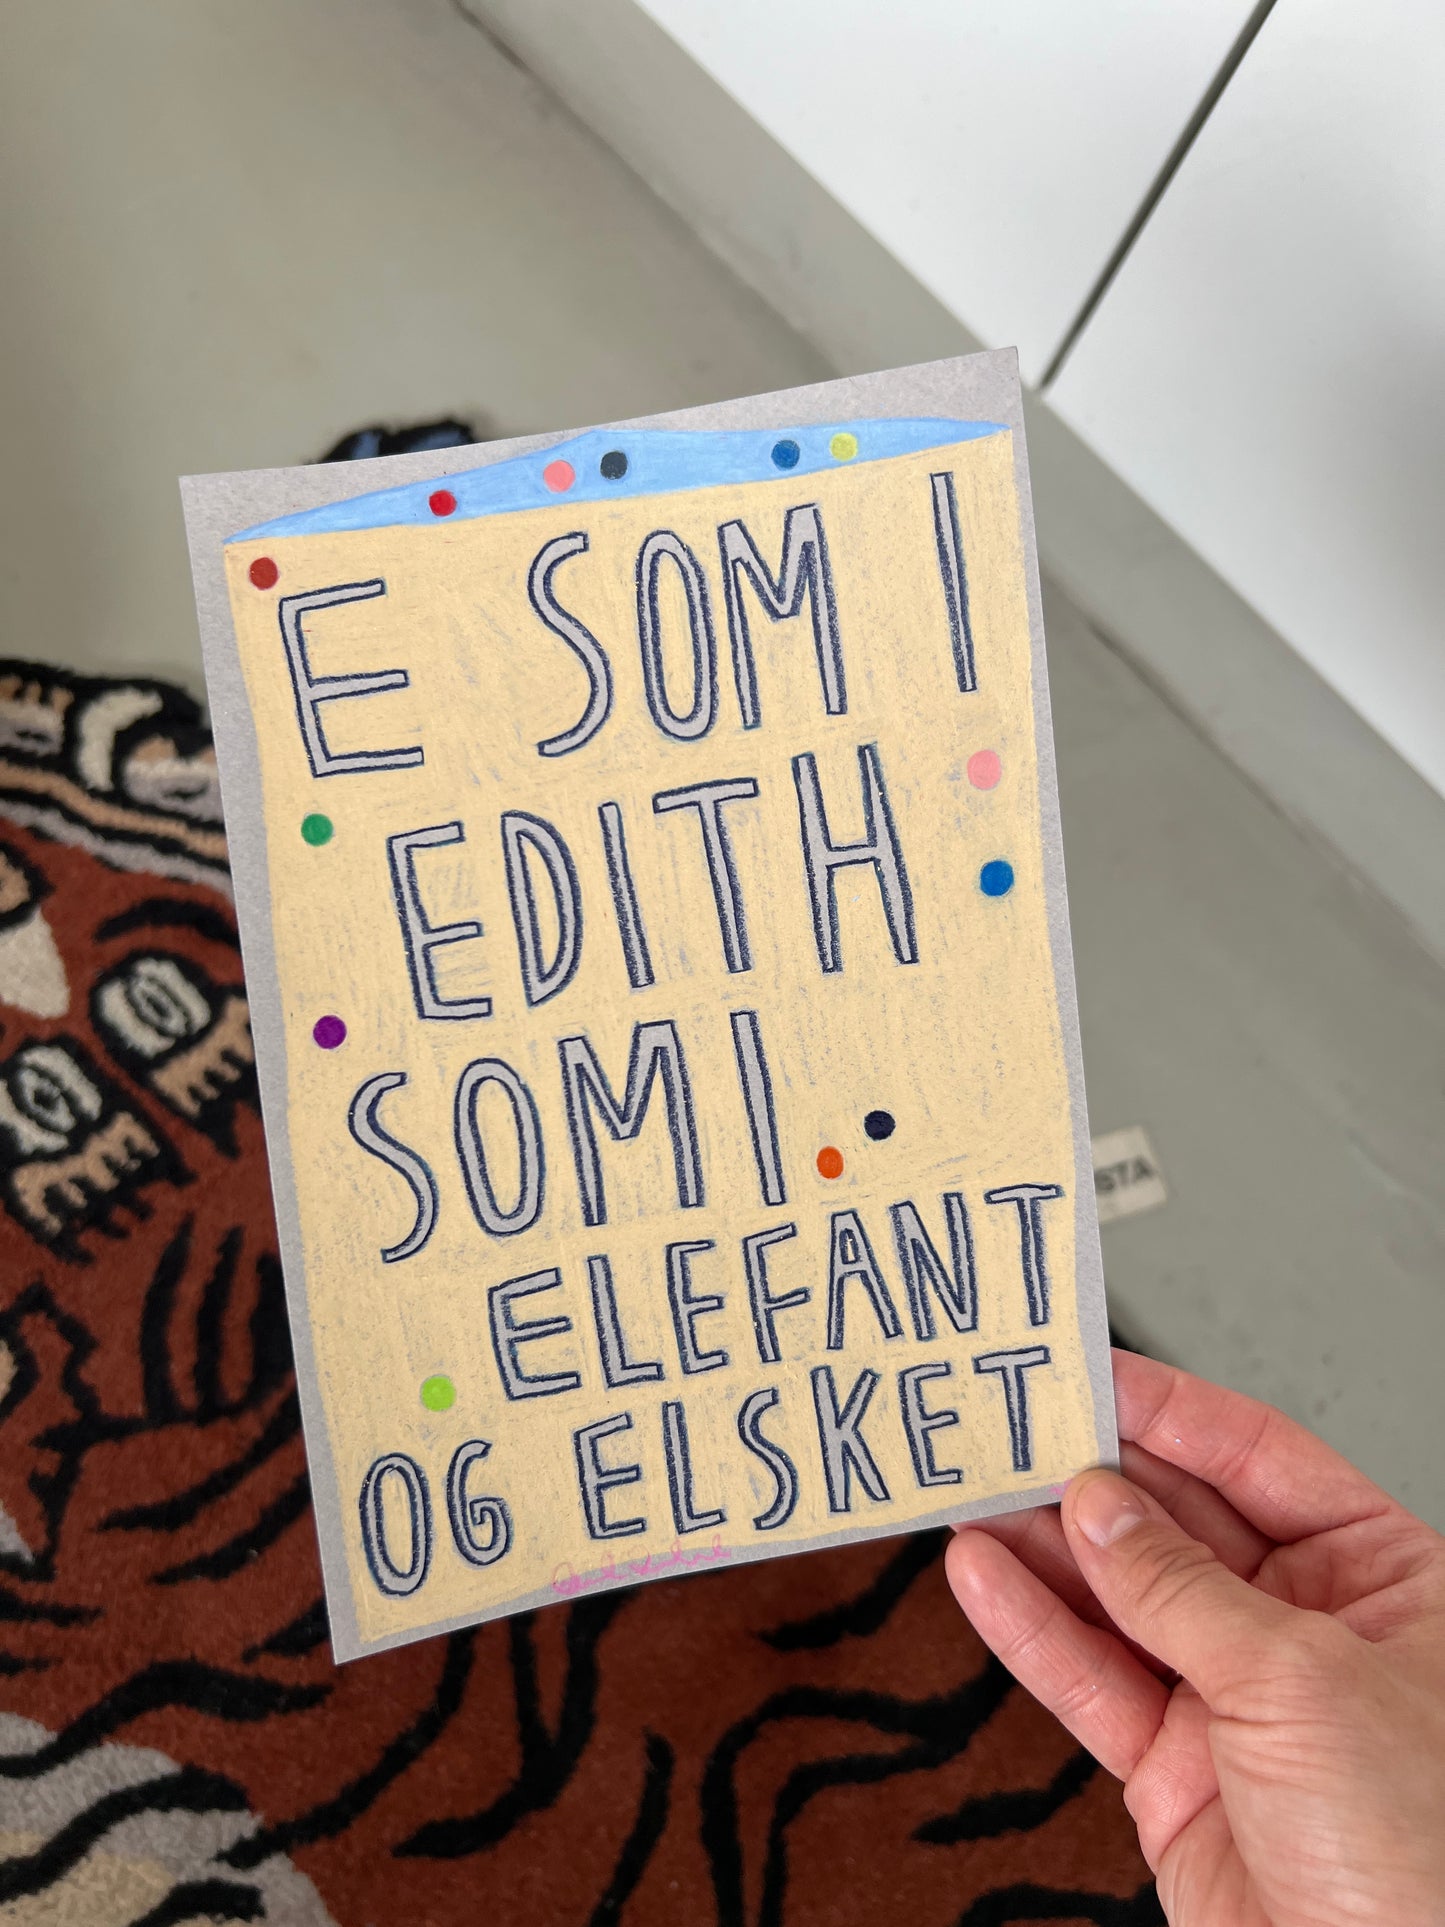 E SOM I
EDITH
SOM I
ELEFANT
OG ELSKET
STA